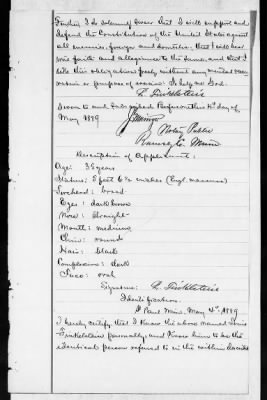 Further, I do solemnly swear that I will support and
defend the Constitution of the United States against
all enemies, foreign and domestic; that I will bear
true faith and allegiance to the same; and that I
take this obligation freely, without any mental reser-
vation or purpose of evasion: So help me God.
L. Finkelstein
Sworn to and subscribed before me this 4th day of
May 1889
Notary Public
Ramsey Co. Minn
Description of Applicant.
Age: 35 years
Stature: 5 feet 6 1/2 inches (Engl measure)
Forehead: broad
Eyes: dark brown
Nose: straight
Mouth: medium
Chin: round
Hair: black
Complexion: dark
Face: oval
Signature: L. Finkelstein
Identification.
St Paul Minn. May 4th, 1889
I hereby certify that I know the above named Louis
Finkelstein personally, and know him to be the
identical person referred to in the within described